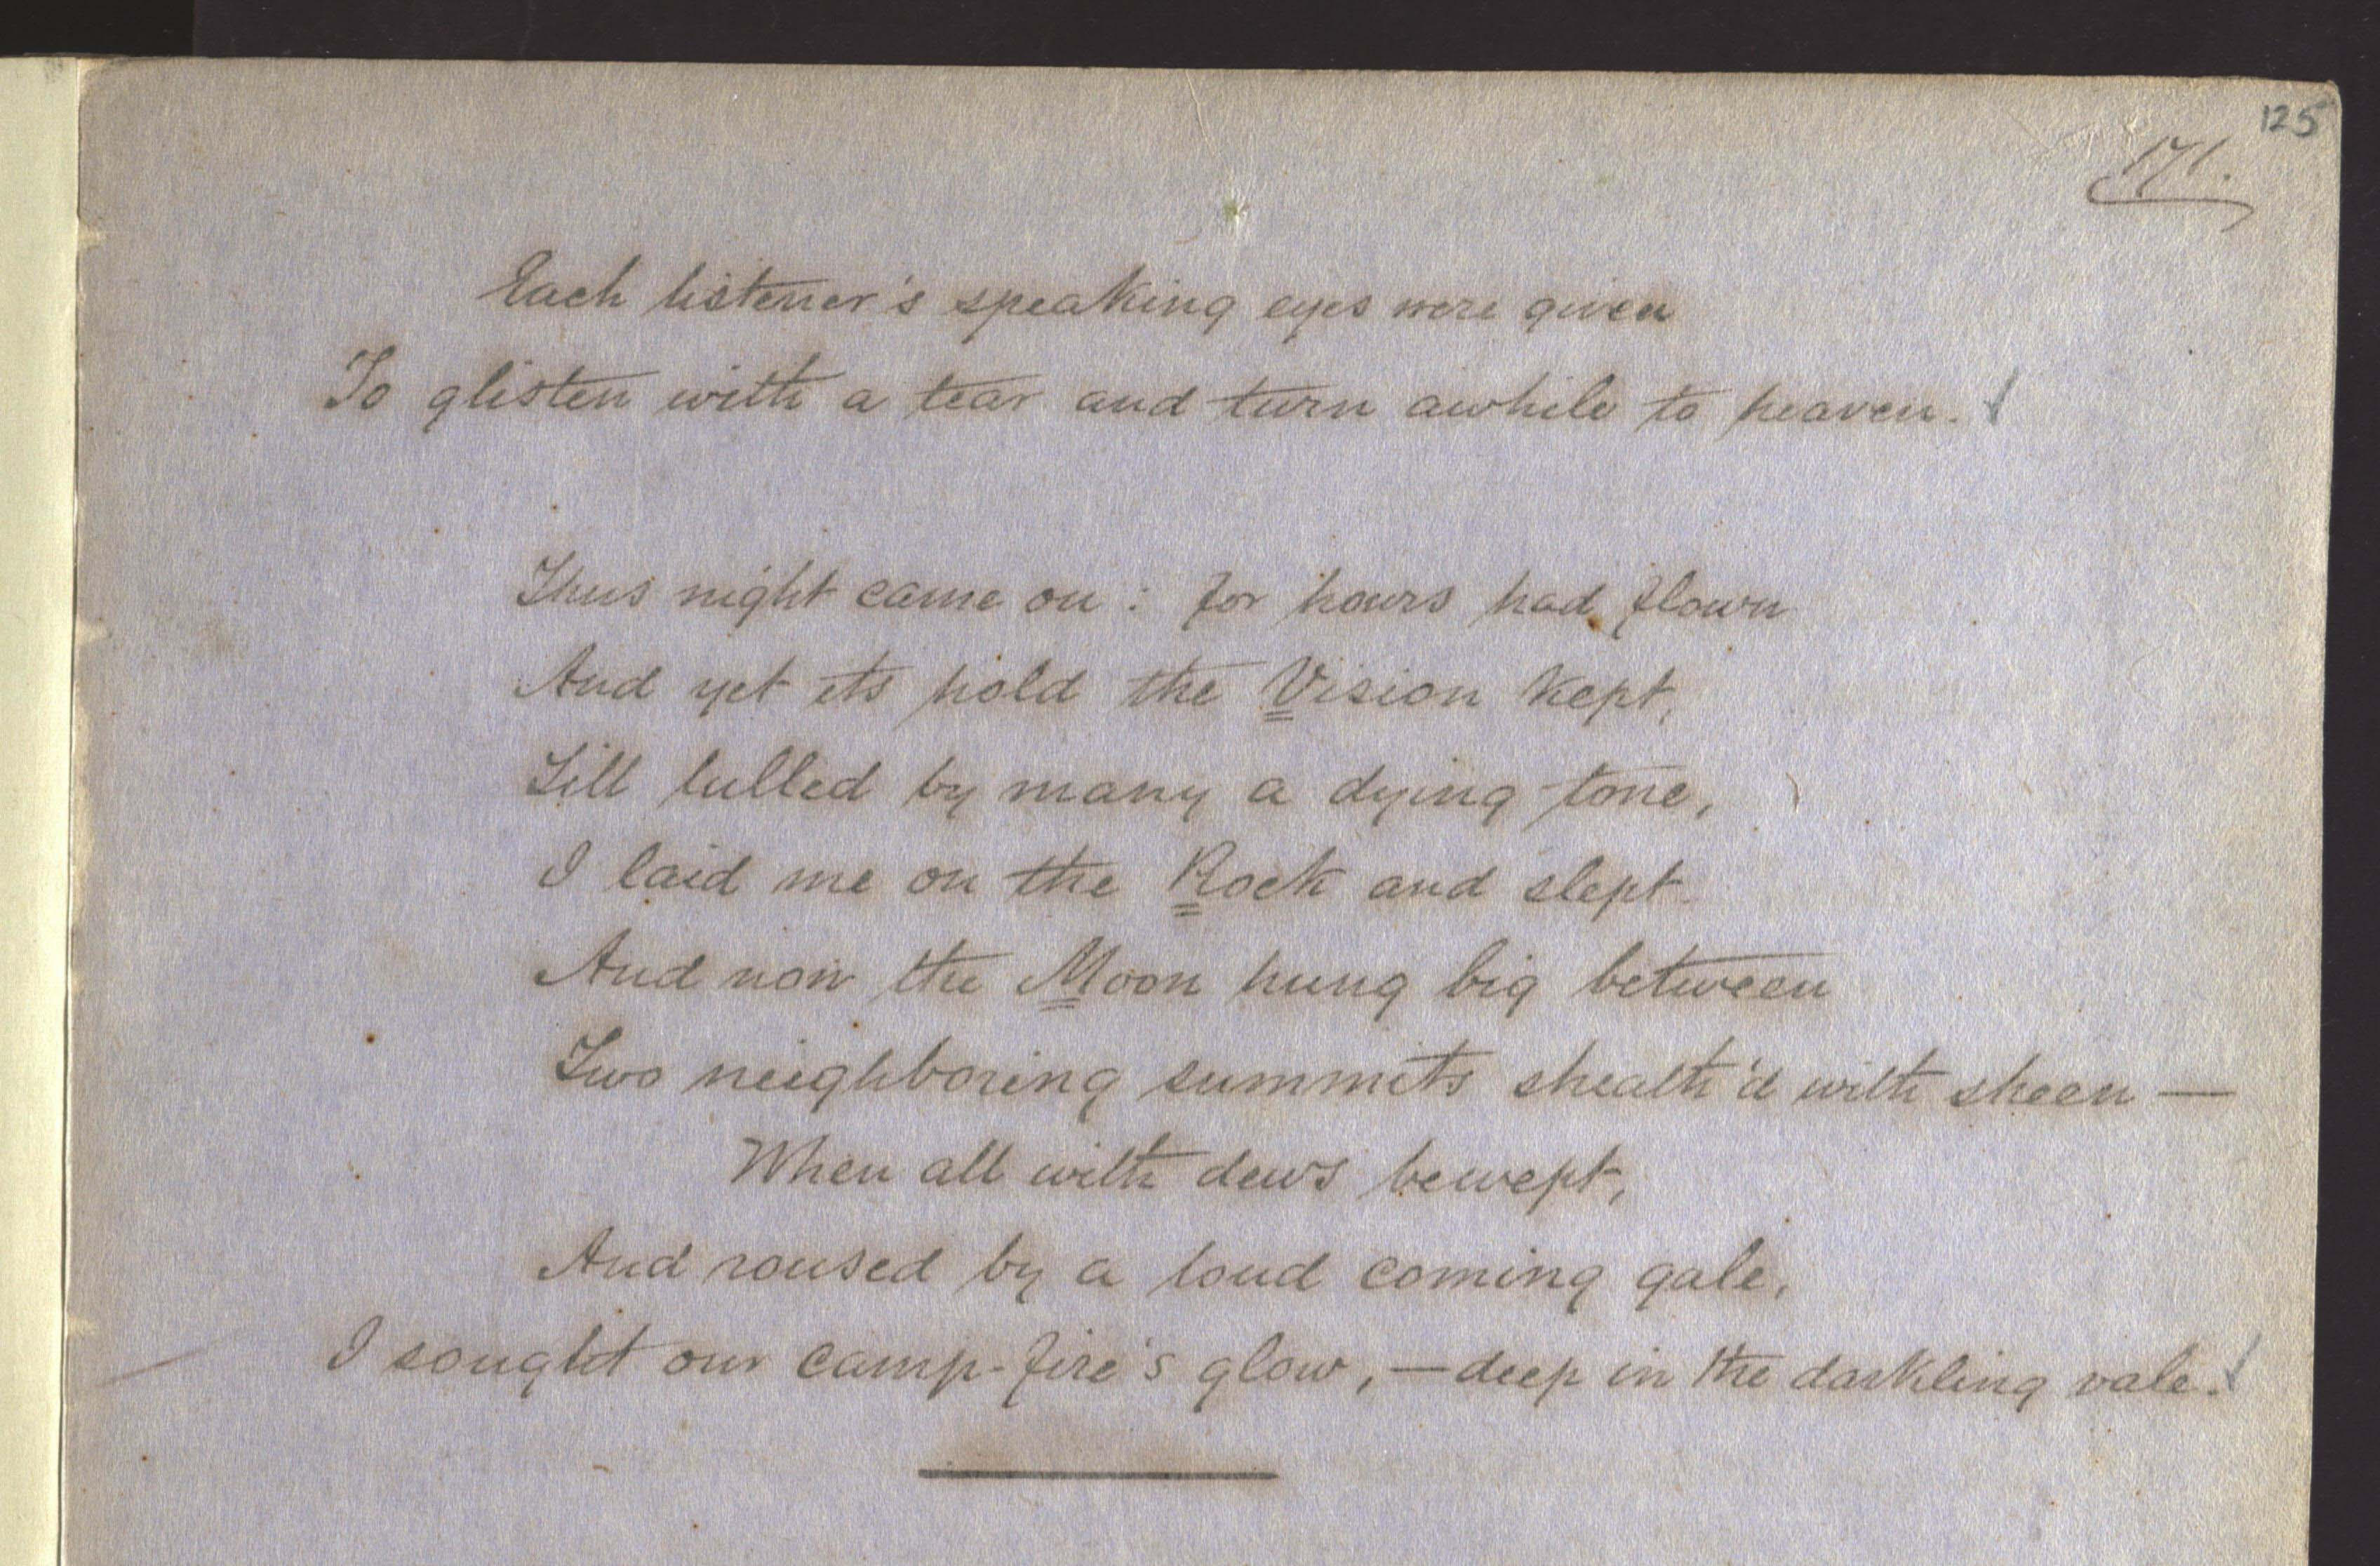 125
171.
Each listener's speaking eyes were given
To glisten with a tear and turn awhile to heaven.
Thus night came on: for hours had flown
And yet its hold the Vision kept,
Till lulled by many a dying tone,
I laid me on the Rock and slept.
And now the Moon hung big between
Two neighboring summits sheath'd with sheen —
When all with dews bewept,
And roused by a loud coming gale,
I sought our camp-fire's glow, — deep in the darkling vale.